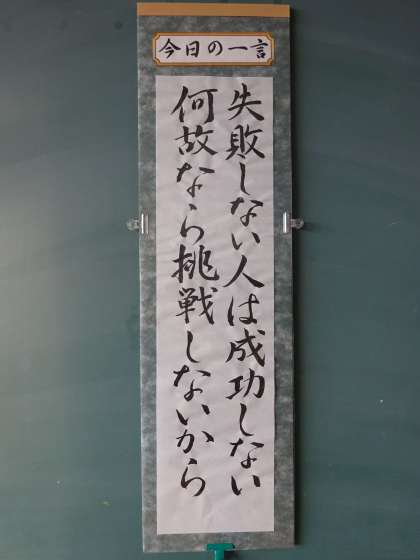 今日の一言
失敗しない人は成功しない
何故なら挑戦しないから